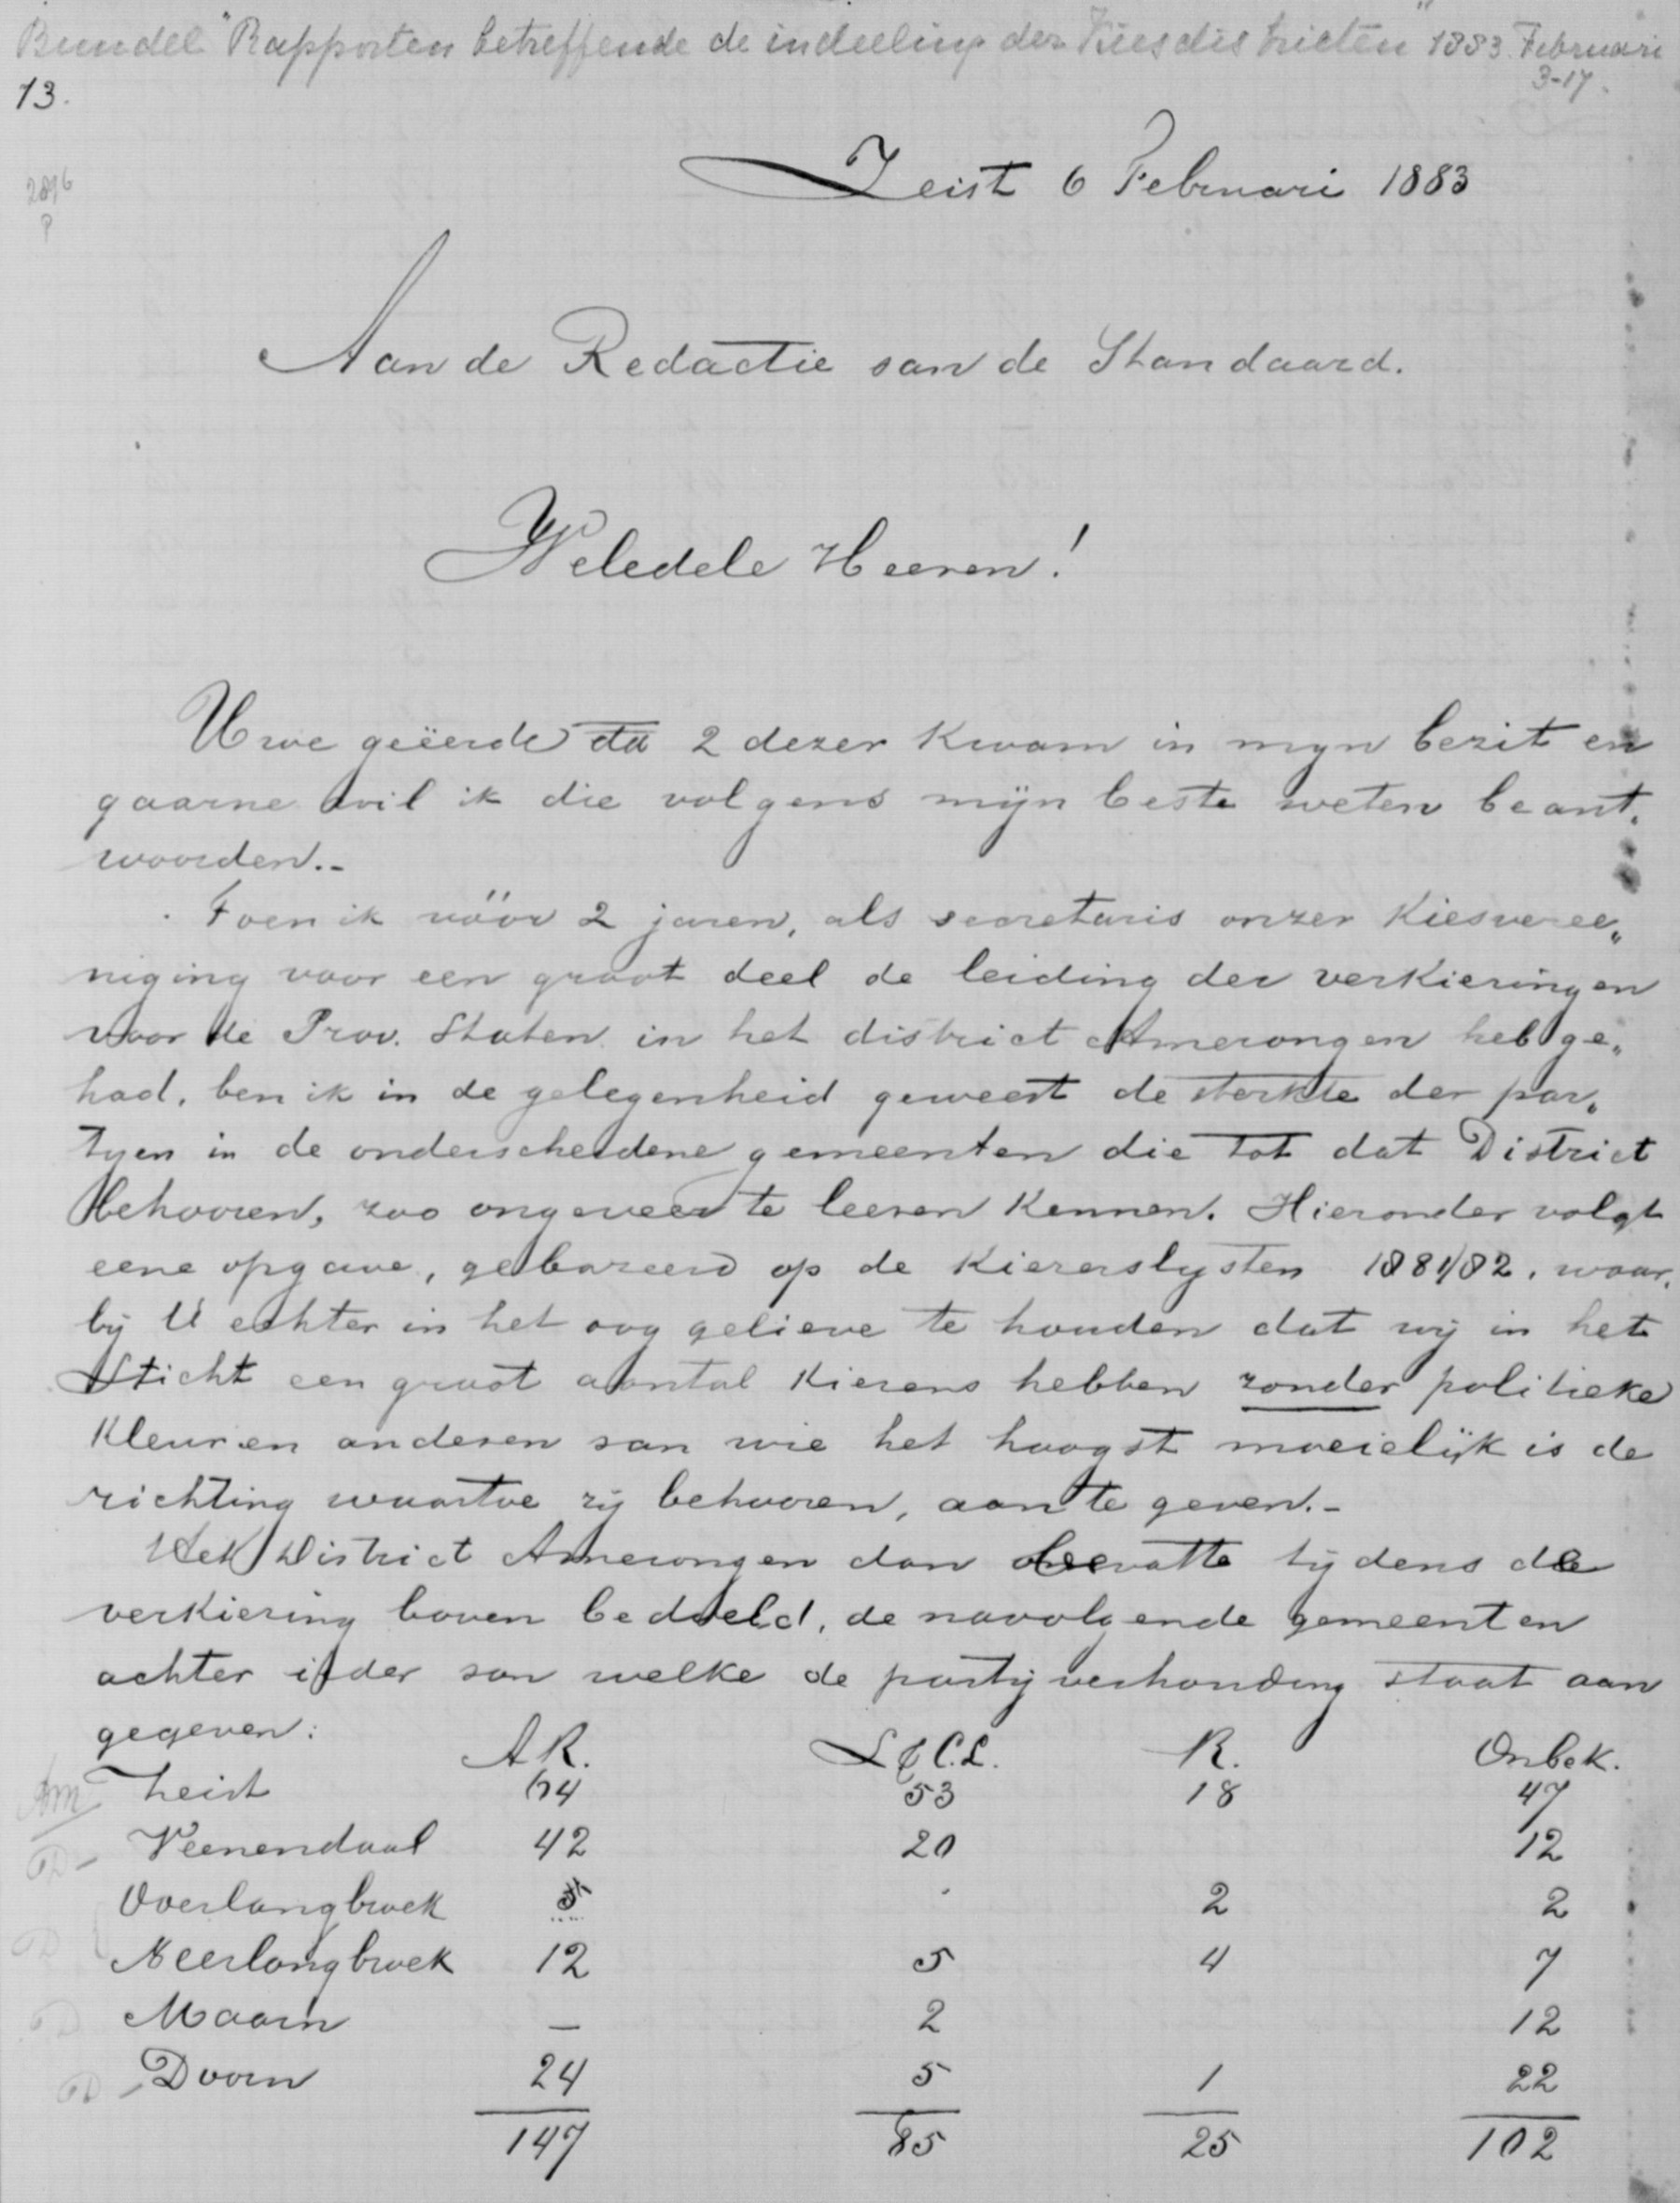 Bundel "Rapporten betreffende de indeeling der Kiesdistricten" 1883 Februari
3-17.
13.
Zeist 6 Februari 1883
Aan de Redactie van de Standaard.
Weledele Heeren!
Uwe geëerde dd 2 dezer kwam in myn bezit en
gaarne wil ik die volgens mijn beste weten beant„
woorden.-
Toen ik vóór 2 jaren, als secretaris onzer Kiesveree„
niging voor een groot deel de leiding der verkiezingen
voor de Prov. Staten in het district Amerongen heb ge„
had, ben ik in de gelegenheid geweest de sterkte der par„
tyen in de onderscheidene gemeenten die tot dat District
behooren, zoo ongeveer te leeren kennen. Hieronder volgt
eene opgave, gebazeerd op de Kiezerslysten 1881/82, waar„
bij U echter in het oog gelieve te houden dat wij in het
Sticht een groot aantal Kiezers hebben zonder politieke
Kleur en anderen van wie het hoogst moeielijk is de
richting waartoe zij behooren, aan te geven.-
Het District Amerongen dan bevatte tijdens de
verkiezing boven bedoeld, de navolgende gemeenten
achter ieder van welke de partijverhouding staat aan
gegeven:
A R. L & C.L. R. Onbek.
Am Zeist 64 53 18 47
D - Veenendaal 42 20 12
Overlangbroek 5 2 2
D Neerlangbroek 12 5 4 7
D Maarn — 2 12
D - Doorn 24 5 1 22
147 85 25 102